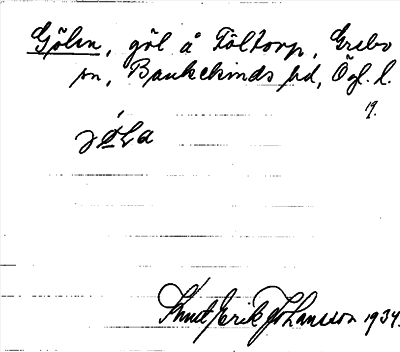 Gölen, göl å Föltorp, Grebo
sn, Bankekinds hd, Ögl. l.
19.
Knut Erik Johansson 1934.